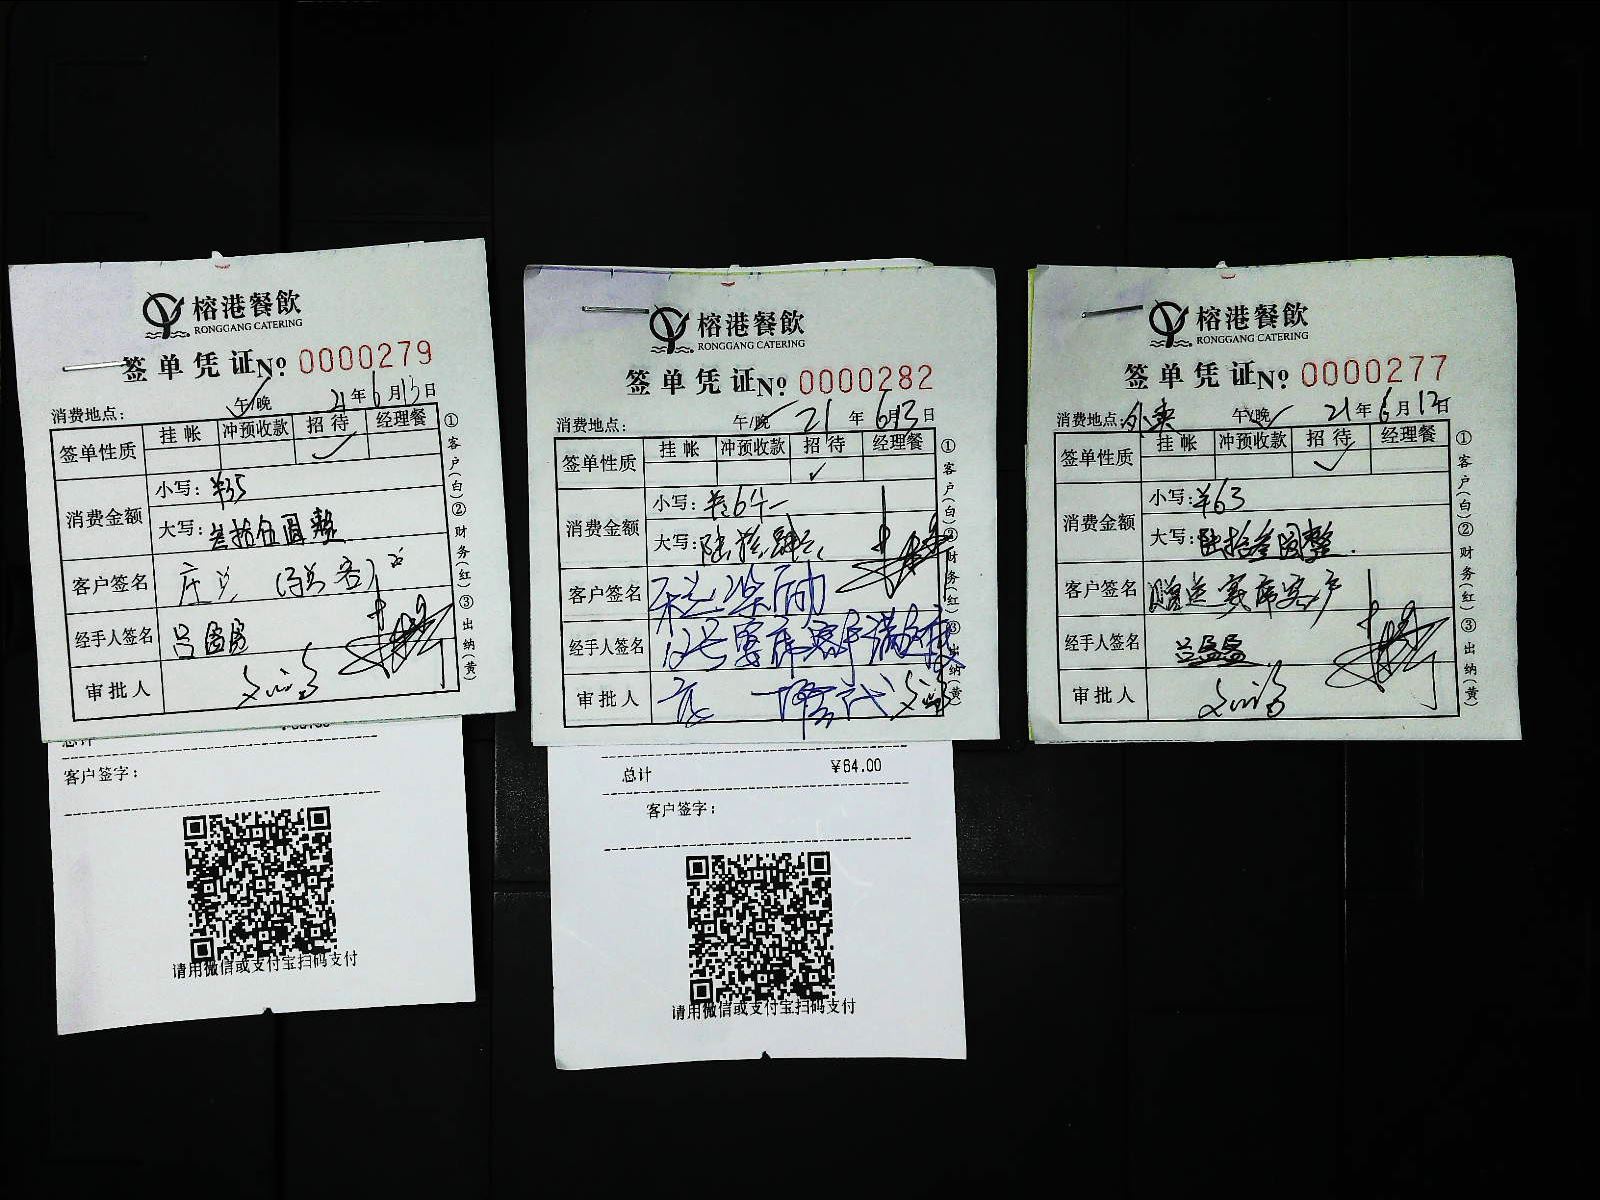 榕港餐飲
RONGGANG CATERING
签单凭证 № 0000279
消费地点: 午/晚 21年6月13日
签单性质 挂帐 冲预收款 招待 经理餐
✓
消费金额
小写: ¥35
大写: 叁拾伍圆整
客户签名
经手人签名 吕盈盈
审批人
①客户(白)②财务(红)③出纳(黄)
总计
客户签字:
请用微信或支付宝扫码支付
榕港餐飲
RONGGANG CATERING
签单凭证 № 0000282
消费地点: 午/晚 21年6月13日
签单性质 挂帐 冲预收款 招待 经理餐
✓
消费金额
小写: ¥64
大写: 陆拾肆元
客户签名
经手人签名
审批人
①客户(白)②财务(红)③出纳(黄)
总计 ¥64.00
客户签字:
请用微信或支付宝扫码支付
榕港餐飲
RONGGANG CATERING
签单凭证 № 0000277
消费地点: 外卖 午/晚 21年6月12日
签单性质 挂帐 冲预收款 招待 经理餐
✓
消费金额
小写: ¥63
大写: 陆拾叁圆整
客户签名 赠送宴席客户
经手人签名 吕盈盈
审批人
①客户(白)②财务(红)③出纳(黄)